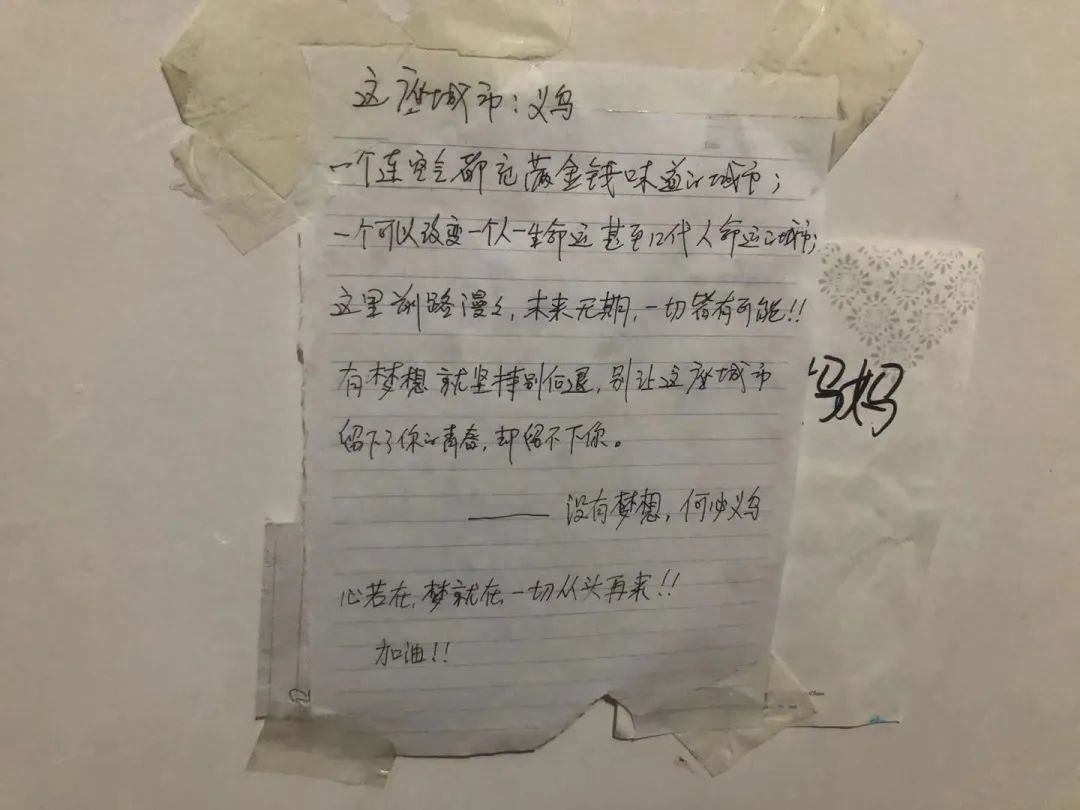 这座城市：义乌
一个连空气都充满金钱味道的城市；
一个可以改变一个人一生命运甚至几代人命运的城市；
这里前路漫々，未来无期，一切皆有可能!!
有梦想就坚持别后退，别让这座城市
留下了你的青春，却留不下你。
——没有梦想，何必义乌
心若在，梦就在，一切从头再来!!
加油!!
妈妈